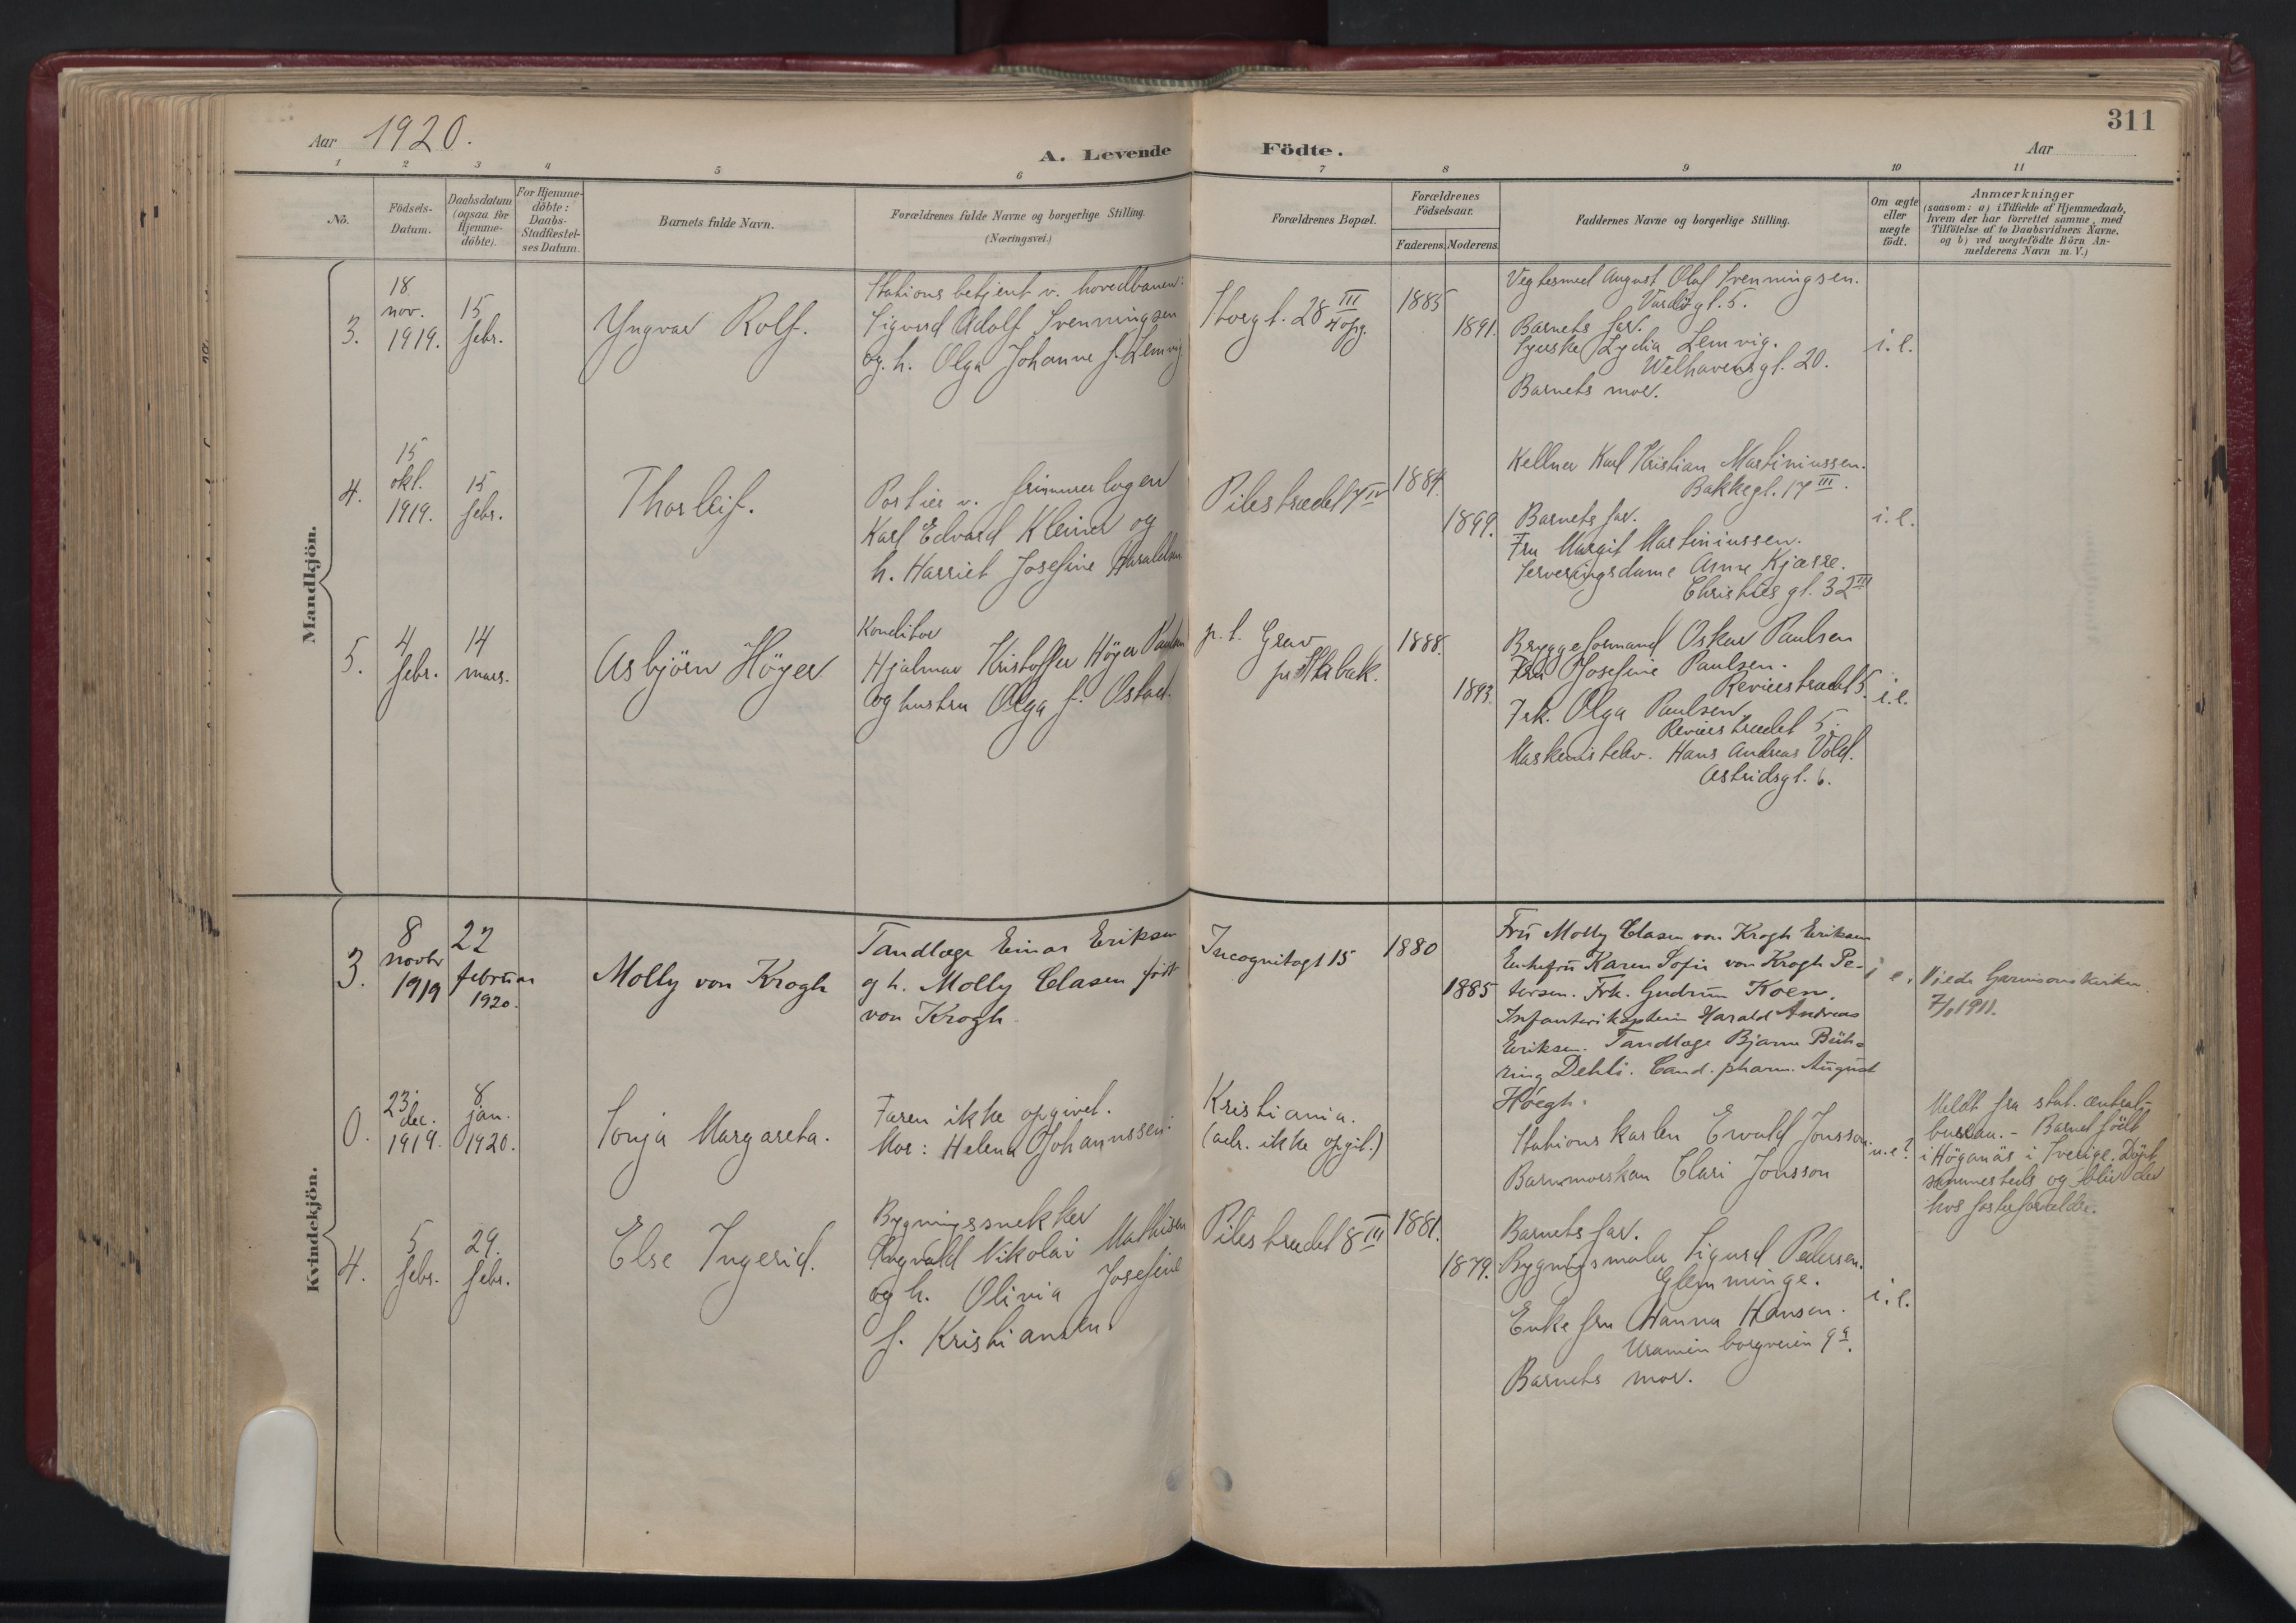 311
Aar 1920.
A. Levende Födte.
Aar
1 2 3 4 5 6 7 8 9 10 11
Nö.
Födsels-
Datum.
Daabsdatum
(ogsaa for
Hjemme-
döbte).
For Hjemme-
döbte:
Daabs-
Stadfæstel-
ses Datum.
Barnets fulde Navn.
Forældrenes fulde Navne og borgerlige Stilling.
(Næringsvei.)
Forældrenes Bopæl.
Forældrenes
Födselsaar.
Faderens. Moderens.
Faddernes Navne og borgerlige Stilling.
Om ægte
eller
uægte
födt.
Anmærkninger
(saasom: a) i Tilfælde af Hjemmedaab,
hvem der har forrettet samme, med
Tilföielse af to Daabsvidners Navne,
og b) ved uægtefödte Börn An-
melderens Navn m. V.)
Mandkjön.
3.
18
nov.
1919.
15
febr.
Yngvar Rolf.
Stationsbetjent v. hovedbanen:
Sigurd Adolf Svenningsen
og h. Olga Johanne f. Lemvig
Storgt. 28 III
4 opg.
1885
1891.
Vegtersmed August Olaf Svenningsen.
Vardøgt. 5.
Barnets far.
Syerske Lydia Lemvig.
Welhavensgt. 20.
Barnets mor.
i. e.
4.
15
okt.
1919.
15
febr.
Thorleif.
Portier v. frimurerlogen
Karl Edvard Kleiner og
h. Harriet Josefine Haraldsen
Pilestrædet 7 IV
1884.
1899.
Kellner Karl Kristian Martiniussen.
Bakkegt. 17 III.
Barnets far.
Fru Margit Martiniussen.
Serveringsdame Anna Kjærre.
Christies gt. 32 III
i. e.
5.
4
febr.
14
mars.
Asbjörn Höyer
Konditor
Hjalmar Kristoffer Höyer Paulsen
og hustru Olga f. Ostad.
p. t. Grav
pr Stabak.
1888.
1893.
Bryggeformand Oskar Paulsen
Fru Josefine Paulsen.
Revierstrædet 5.
Frk. Olga Paulsen
Revierstrædet 5.
Maskinistelev. Hans Andreas Vold.
Astridsgt. 6.
i. e.
Kvindekjön.
3.
8
novbr
1919
22
februar
1920.
Molly von Krogh
Tandlæge Einar Eriksen
og h. Molly Clasen født
von Krogh
Incognitogt 15
1880
1885
Fru Molly Clasen von Krogh Eriksen
Enkefru Karen Sofie von Krogh Pe-
tersen. Frk. Gudrun Koen.
Infanterikaptein Harald Andreas
Eriksen. Tandlæge Bjarne Büh-
ring Dehli. Cand. pharm. August
Höegh.
i e.
Viede Garnisonskirken
7/1 1911.
0.
23
dec.
1919.
8
jan.
1920.
Sonja Margareta.
Faren ikke opgivet.
Mor: Helena Johannssen.
Kristiania.
(adr. ikke opgit.)
Stationskarlen Ewald Jonsson.
Barnmorskan Clari Jonsson
u. e?
Meldt fra stat. central-
bureau. - Barnet född
i Höganäs i Sverige. Döpt
sammesteds og blir der
hos fosterforældre.
4.
5
febr.
29.
febr.
Else Ingerid.
Bygningssnekker
Ragvald Nikolai Mathisen
og h. Olivia Josefine
f. Kristiansen.
Pilestrædet 8 III
1881.
1879.
Barnets far.
Bygningsmaler Sigurd Pedersen.
Glemminge.
Enkefru Hanna Hansen.
Uranienborgveien 9 a.
Barnets mor.
i. e.